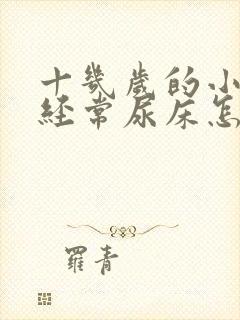 十幾歲的小
經常尿床怎
羅青